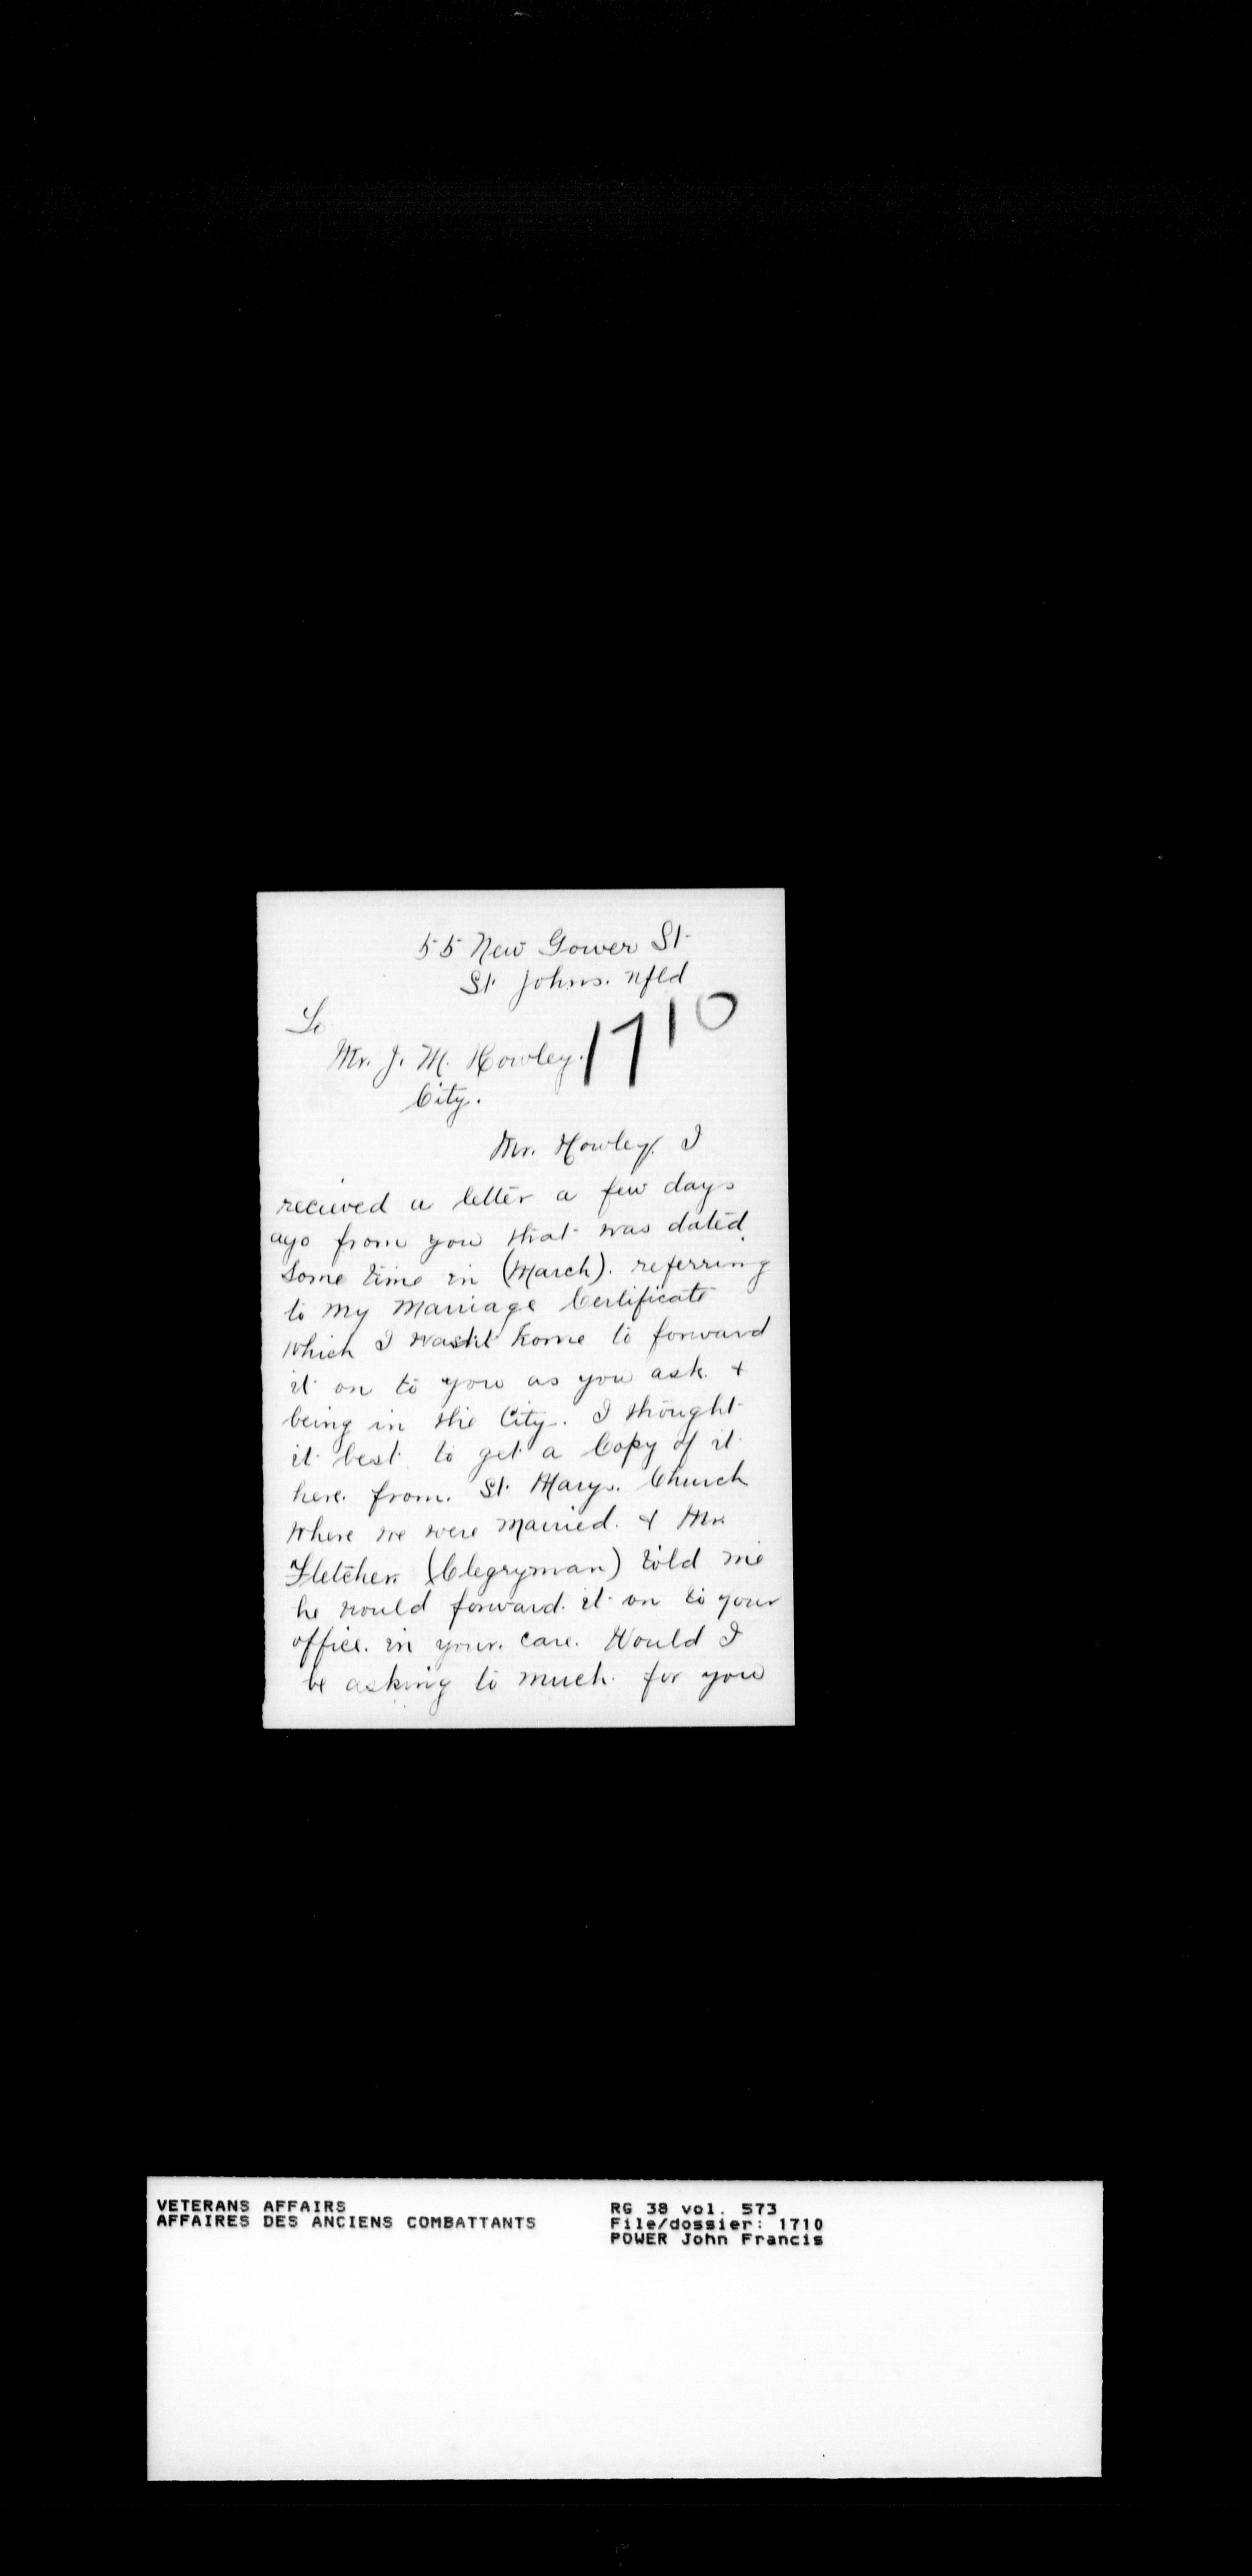 55 New Gower St
St Johns. Nfld
To
1710
Mr. J. M. Howley.
City.
Mr. Howley. I
recieved a letter a few days
ago from you that was dated
some time in (March). referring
to my Marriage Certificate
which I wasnt home to forward
it on to you as you ask. &
being in the City. I thought
it best to get a Copy of it
here. from. St. Marys. Church
where we were married. & Mr.
Fletcher. (Clegryman) told me
he would forward. it on to your
office. in your. care. Would I
be asking to much. for you
VETERANS AFFAIRS
AFFAIRES DES ANCIENS COMBATTANTS
RG 38 vol. 573
File/dossier: 1710
POWER John Francis